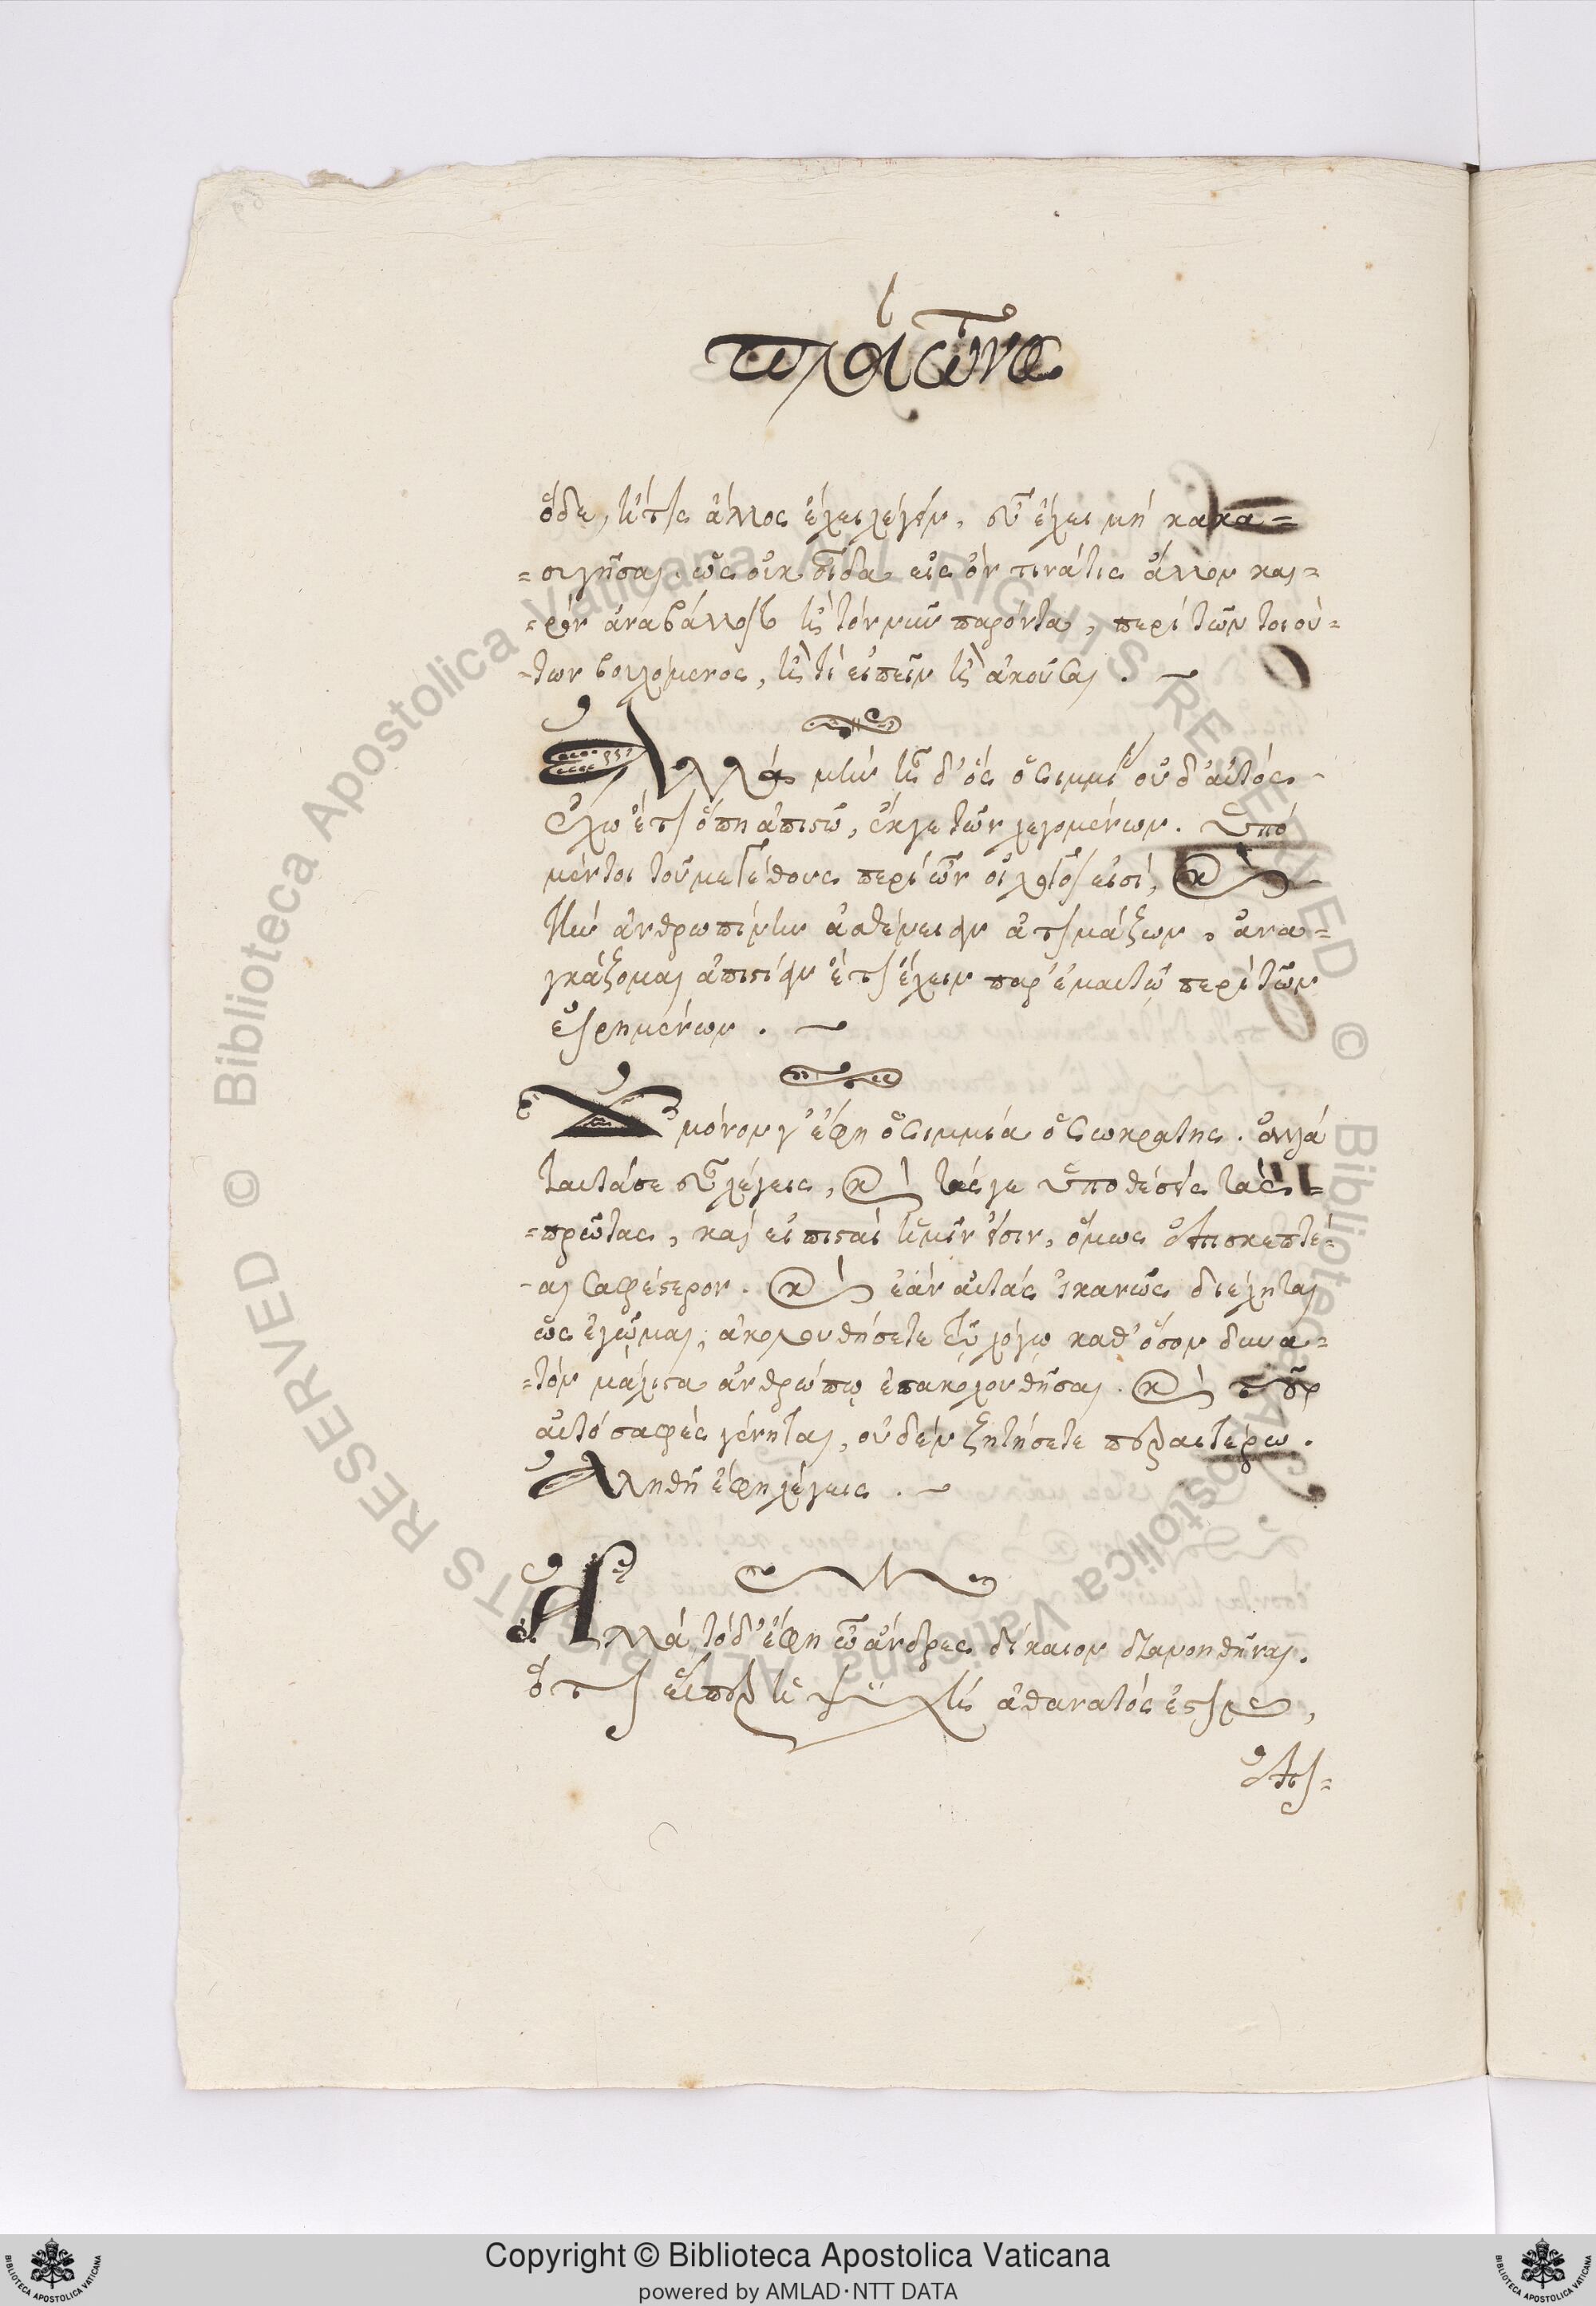 περὶ ὧν
ὅδε, ἤ τις ἄλλος ἔχει λέγειν, εὖ ἔχει μή κατα=
=σιγῆσαι. ὡς οὐκ οἶδα εἰς ὅν τινά τις ἄλλον και=
=ρόν ἀναβάλλοιτο ἤ τόν νῦν παρόντα, περί τῶν τοιού=
-των βουλόμενος, ἤ τί εἰπεῖν ἤ ἀκοῦσαι.
Ἀλλά μήν ἦ δ' ὅς ὁ Σιμμίας οὐδ' αὐτός
ἔχω ἔτι ὅπη ἀπιστῶ, ἔκγε τῶν λεγομένων. ὑπό
μέντοι τοῦ μεγέθους περί ὧν οἱ λόγοι εἰσί, καὶ
τήν ἀνθρωπίνην ἀσθένειαν ἀτιμάζων, ἀνα=
γκάζομαι ἀπιστίαν ἔτι ἔχειν παρ' ἐμαυτῷ περί τῶν
εἰρημένων.
Οὐ μόνον γ' ἔφη ὦ Σιμμία ὁ Σωκράτης. ἀλλά
ταῦτά τε εὖ λέγεις, καὶ τάς γε ὑποθέσεις τάς
=πρώτας, καί εἰ πισταί ἡμῖν εἰσιν, ὅμως ἐπισκεπτέ=
-αι σαφέστερον. καὶ ἐάν αὐτάς ἱκανῶς διέλητε
ὡς ἐγῷμαι, ἀκολουθήσετε τῷ λόγῳ καθ' ὅσον δυνα=
-τόν μάλιστα ἀνθρώπῳ ἐπακολουθῆσαι. καὶ τοῦτο
αὐτό σαφές γένηται, οὐδέν ζητήσετε περαιτέρω.
Ἀληθῆ ἔφη λέγεις.
Ἀλλά τόδ' ἔφη ὦ ἄνδρες δίκαιον διανοηθῆναι.
ὅτι εἴπερ ἡ ψυχή ἀθάνατός ἐστι,
ἐπι=
Copyright © Biblioteca Apostolica Vaticana
powered by AMLAD·NTT DATA